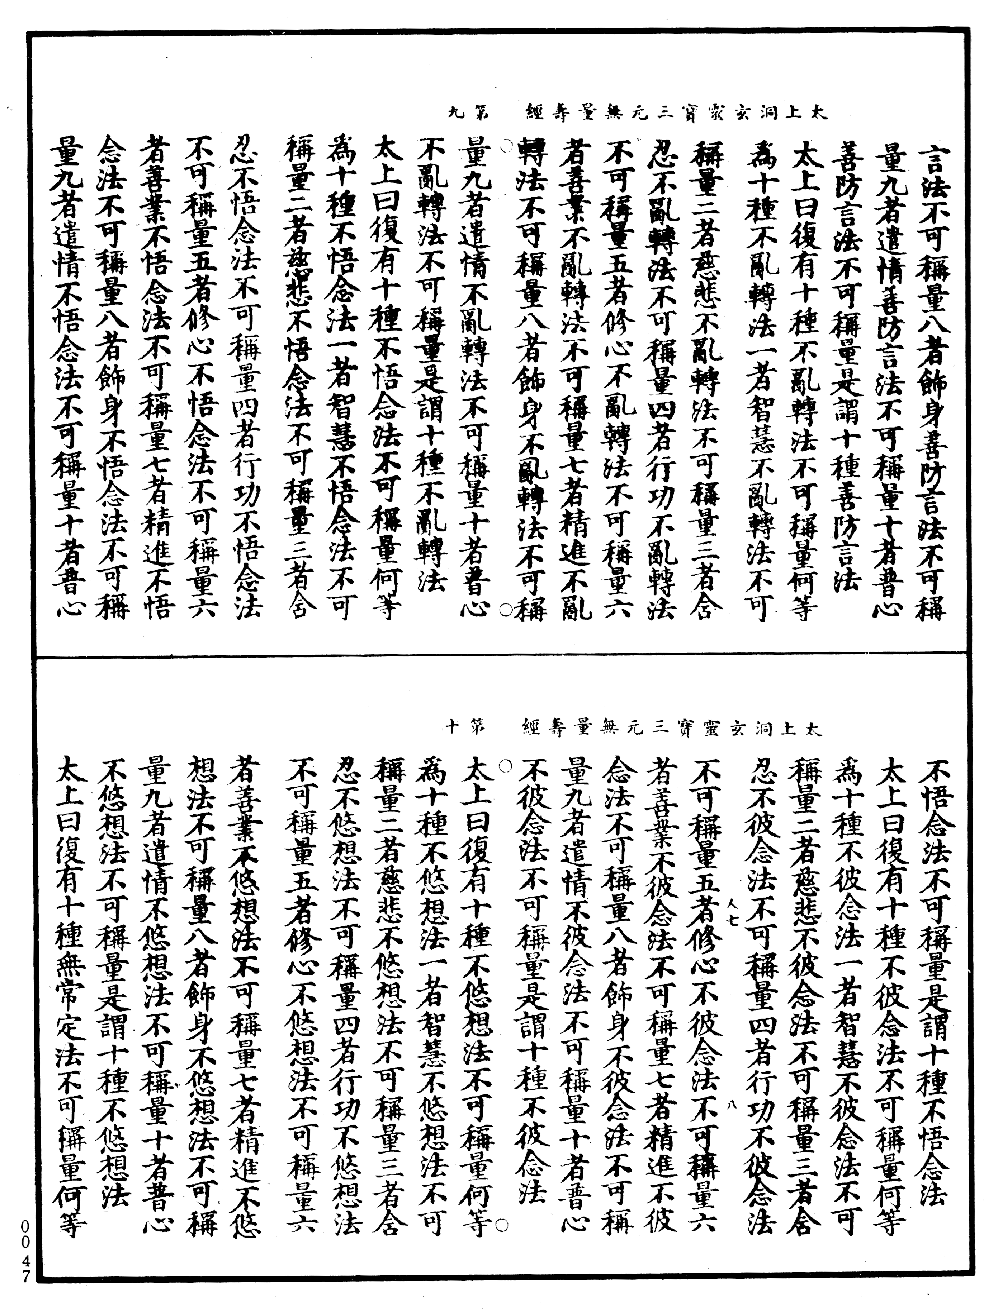 太上洞玄靈寶三元無量壽經　第九
言法不可稱量八者飾身善防言法不可稱
量九者遣情善防言法不可稱量十者普心
善防言法不可稱量是謂十種善防言法
太上曰復有十種不亂轉法不可稱量何等
為十種不亂轉法一者智慧不亂轉法不可
稱量二者慈悲不亂轉法不可稱量三者舍
忍不亂轉法不可稱量四者行功不亂轉法
不可稱量五者修心不亂轉法不可稱量六
者善業不亂轉法不可稱量七者精進不亂
轉法不可稱量八者飾身不亂轉法不可稱
量九者遣情不亂轉法不可稱量十者普心
不亂轉法不可稱量是謂十種不亂轉法
太上曰復有十種不悟念法不可稱量何等
為十種不悟念法一者智慧不悟念法不可
稱量二者慈悲不悟念法不可稱量三者舍
忍不悟念法不可稱量四者行功不悟念法
不可稱量五者修心不悟念法不可稱量六
者善業不悟念法不可稱量七者精進不悟
念法不可稱量八者飾身不悟念法不可稱
量九者遣情不悟念法不可稱量十者普心
太上洞玄靈寶三元無量壽經　第十
不悟念法不可稱量是謂十種不悟念法
太上曰復有十種不彼念法不可稱量何等
為十種不彼念法一者智慧不彼念法不可
稱量二者慈悲不彼念法不可稱量三者舍
忍不彼念法不可稱量四者行功不彼念法
人七　八
不可稱量五者修心不彼念法不可稱量六
者善業不彼念法不可稱量七者精進不彼
念法不可稱量八者飾身不彼念法不可稱
量九者遣情不彼念法不可稱量十者普心
不彼念法不可稱量是謂十種不彼念法
太上曰復有十種不悠想法不可稱量何等
為十種不悠想法一者智慧不悠想法不可
稱量二者慈悲不悠想法不可稱量三者舍
忍不悠想法不可稱量四者行功不悠想法
不可稱量五者修心不悠想法不可稱量六
者善業不悠想法不可稱量七者精進不悠
想法不可稱量八者飾身不悠想法不可稱
量九者遣情不悠想法不可稱量十者普心
不悠想法不可稱量是謂十種不悠想法
太上曰復有十種無常定法不可稱量何等
0047